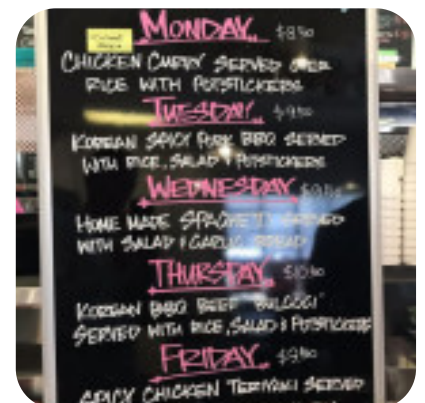 MONDAY $8.50
CHICKEN CURRY SERVED OVER
RICE WITH POTSTICKERS
TUESDAY $9.50
KOREAN SPICY PORK BBQ SERVED
WITH RICE, SALAD & POTSTICKERS
WEDNESDAY
HOME MADE SPAGHETTI SERVED
WITH SALAD & GARLIC BREAD
THURSDAY $10.50
KOREAN BBQ BEEF "BULGOGI"
SERVED WITH RICE, SALAD & POTSTICKERS
FRIDAY $9.50
SPICY CHICKEN TERIYAKI SERVED